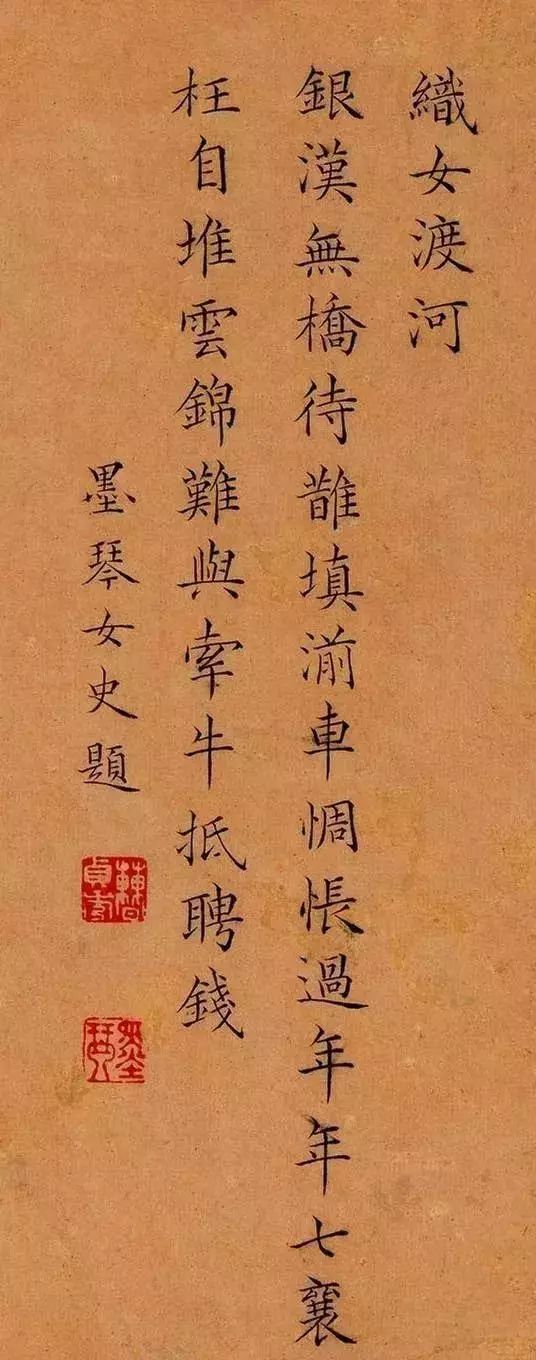 織女渡河
銀漢無橋待鵲填湔車惆悵過年年七襄
枉自堆雲錦難與牽牛抵聘錢
墨琴女史題
墨琴